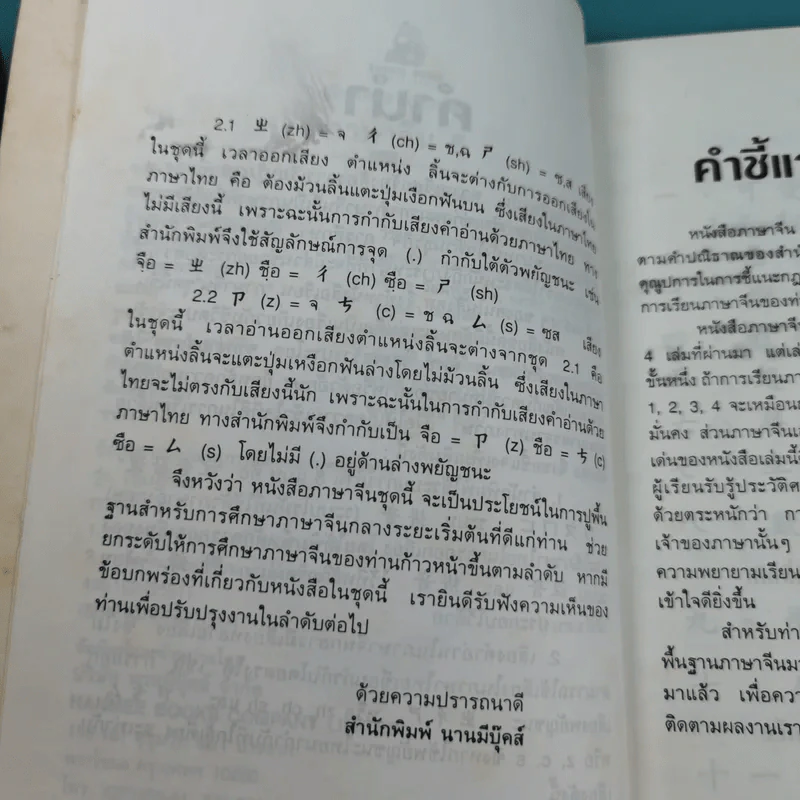 2.1 ㄓ (zh) = จ ㄔ (ch) = ช,ฉ ㄕ (sh) = ซ,ส เสียง
ในชุดนี้ เวลาออกเสียง ตำแหน่ง ลิ้นจะต่างกับการออกเสียงใน
ภาษาไทย คือ ต้องม้วนลิ้นแตะปุ่มเงือกฟันบน ซึ่งเสียงในภาษาไทย
ไม่มีเสียงนี้ เพราะฉะนั้นการกำกับเสียงคำอ่านด้วยภาษาไทย ทาง
สำนักพิมพ์จึงใช้สัญลักษณ์การจุด (.) กำกับใต้ตัวพยัญชนะ เช่น
จฺือ = ㄓ (zh) ชฺือ = ㄔ (ch) ซฺือ = ㄕ (sh)
2.2 ㄗ (z) = จ ㄘ (c) = ช ฉ ㄙ (s) = ซส เสียง
ในชุดนี้ เวลาอ่านออกเสียงตำแหน่งลิ้นจะต่างจากชุด 2.1 คือ
ตำแหน่งลิ้นจะแตะปุ่มเหงือกฟันล่างโดยไม่ม้วนลิ้น ซึ่งเสียงในภาษา
ไทยจะไม่ตรงกับเสียงนี้นัก เพราะฉะนั้นในการกำกับเสียงคำอ่านด้วย
ภาษาไทย ทางสำนักพิมพ์จึงกำกับเป็น จือ = ㄗ (z) ชือ = ㄘ (c)
ซือ = ㄙ (s) โดยไม่มี (.) อยู่ด้านล่างพยัญชนะ
จึงหวังว่า หนังสือภาษาจีนชุดนี้ จะเป็นประโยชน์ในการปูพื้น
ฐานสำหรับการศึกษาภาษาจีนกลางระยะเริ่มต้นที่ดีแก่ท่าน ช่วย
ยกระดับให้การศึกษาภาษาจีนของท่านก้าวหน้าขึ้นตามลำดับ หากมี
ข้อบกพร่องที่เกี่ยวกับหนังสือในชุดนี้ เรายินดีรับฟังความเห็นของ
ท่านเพื่อปรับปรุงงานในลำดับต่อไป
ด้วยความปรารถนาดี
สำนักพิมพ์ นานมีบุ๊คส์
คำชี้แ
หนังสือภาษาจีน
ตามคำปณิธานของสำนั
คุณูปการในการชี้แนะกฎ
การเรียนภาษาจีนของท่า
หนังสือภาษาจี
4 เล่มที่ผ่านมา แต่เล่
ขั้นหนึ่ง ถ้าการเรียนภา
1, 2, 3, 4 จะเหมือน
มั่นคง ส่วนภาษาจีนเ
เด่นของหนังสือเล่มนี้
ผู้เรียนรับรู้ประวัติศ
ด้วยตระหนักว่า กา
เจ้าของภาษานั้นๆ
ความพยายามเรียน
เข้าใจดียิ่งขึ้น
สำหรับท่า
พื้นฐานภาษาจีนมา
มาแล้ว เพื่อควา
ติดตามผลงานเรา